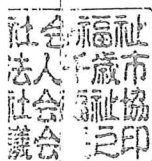 社会福祉
法人千歳市
社会福祉協
議会之印